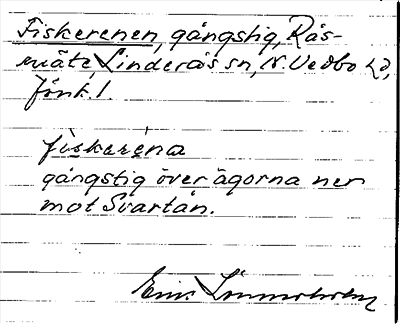 Fiskerenen, gångstig, Rås-
mäte, Linderås sn, N. Vedbo hd,
Jönk. l.
fiskaréna
gångstig över ägorna ner
mot Svartån.